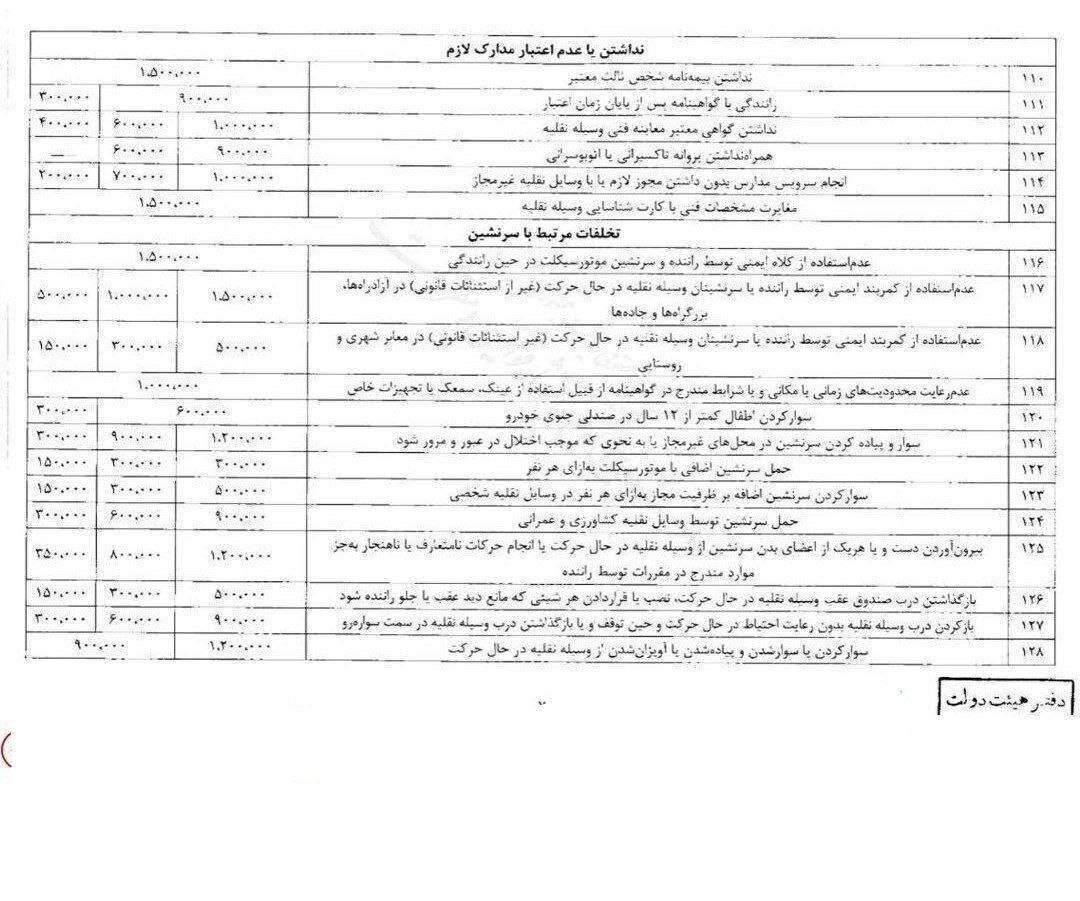 نداشتن یا عدم اعتبار مدارک لازم
۱۱۰ نداشتن بیمه‌نامه شخص ثالث معتبر ۱.۵۰۰,۰۰۰
۱۱۱ رانندگی با گواهینامه پس از پایان زمان اعتبار ۹۰۰,۰۰۰ ۳۰۰,۰۰۰
۱۱۲ نداشتن گواهی معتبر معاینه فنی وسیله نقلیه ۱.۰۰۰,۰۰۰ ۶۰۰,۰۰۰ ۴۰۰,۰۰۰
۱۱۳ همراه‌نداشتن پروانه تاکسیرانی یا اتوبوسرانی ۹۰۰,۰۰۰ ۶۰۰,۰۰۰ —
۱۱۴ انجام سرویس مدارس بدون داشتن مجوز لازم یا با وسایل نقلیه غیرمجاز ۱.۰۰۰,۰۰۰ ۷۰۰,۰۰۰ ۲۰۰,۰۰۰
۱۱۵ مغایرت مشخصات فنی با کارت شناسایی وسیله نقلیه ۱.۵۰۰,۰۰۰
تخلفات مرتبط با سرنشین
۱۱۶ عدم‌استفاده از کلاه ایمنی توسط راننده و سرنشین موتورسیکلت در حین رانندگی ۱.۵۰۰,۰۰۰
۱۱۷ عدم‌استفاده از کمربند ایمنی توسط راننده یا سرنشینان وسیله نقلیه در حال حرکت (غیر از استثنائات قانونی) در آزادراه‌ها، ۱.۵۰۰,۰۰۰ ۱.۰۰۰,۰۰۰ ۵۰۰,۰۰۰
بزرگراه‌ها و جاده‌ها
۱۱۸ عدم‌استفاده از کمربند ایمنی توسط راننده یا سرنشینان وسیله نقلیه در حال حرکت (غیر استثنائات قانونی) در معابر شهری و ۵۰۰,۰۰۰ ۳۰۰,۰۰۰ ۱۵۰,۰۰۰
روستایی
۱۱۹ عدم‌رعایت محدودیت‌های زمانی یا مکانی و یا شرایط مندرج در گواهینامه از قبیل استفاده از عینک، سمعک یا تجهیزات خاص ۱.۰۰۰,۰۰۰
۱۲۰ سوارکردن اطفال کمتر از ۱۲ سال در صندلی جلوی خودرو ۶۰۰,۰۰۰ ۳۰۰,۰۰۰
۱۲۱ سوار و پیاده کردن سرنشین در محل‌های غیرمجاز یا به نحوی که موجب اختلال در عبور و مرور شود ۱.۲۰۰,۰۰۰ ۹۰۰,۰۰۰ ۳۰۰,۰۰۰
۱۲۲ حمل سرنشین اضافی با موتورسیکلت به‌ازای هر نفر ۳۰۰,۰۰۰ ۳۰۰,۰۰۰ ۱۵۰,۰۰۰
۱۲۳ سوارکردن سرنشین اضافه بر ظرفیت مجاز به‌ازای هر نفر در وسایل نقلیه شخصی ۵۰۰,۰۰۰ ۳۰۰,۰۰۰ ۱۵۰,۰۰۰
۱۲۴ حمل سرنشین توسط وسایل نقلیه کشاورزی و عمرانی ۹۰۰,۰۰۰ ۶۰۰,۰۰۰ ۳۰۰,۰۰۰
۱۲۵ بیرون‌آوردن دست و یا هریک از اعضای بدن سرنشین از وسیله نقلیه در حال حرکت یا انجام حرکات نامتعارف یا ناهنجار به‌جز ۱.۲۰۰,۰۰۰ ۸۰۰,۰۰۰ ۳۵۰,۰۰۰
موارد مندرج در مقررات توسط راننده
۱۲۶ بازگذاشتن درب صندوق عقب وسیله نقلیه در حال حرکت، نصب یا قراردادن هر شیئی که مانع دید عقب یا جلو راننده شود ۵۰۰,۰۰۰ ۳۰۰,۰۰۰ ۱۵۰,۰۰۰
۱۲۷ بازکردن درب وسیله نقلیه بدون رعایت احتیاط در حال حرکت و حین توقف و یا بازگذاشتن درب وسیله نقلیه در سمت سواره‌رو ۹۰۰,۰۰۰ ۶۰۰,۰۰۰ ۳۰۰,۰۰۰
۱۲۸ سوارکردن یا سوارشدن و پیاده‌شدن یا آویزان‌شدن از وسیله نقلیه در حال حرکت ۱.۲۰۰,۰۰۰ ۹۰۰,۰۰۰
دفتر هیئت دولت